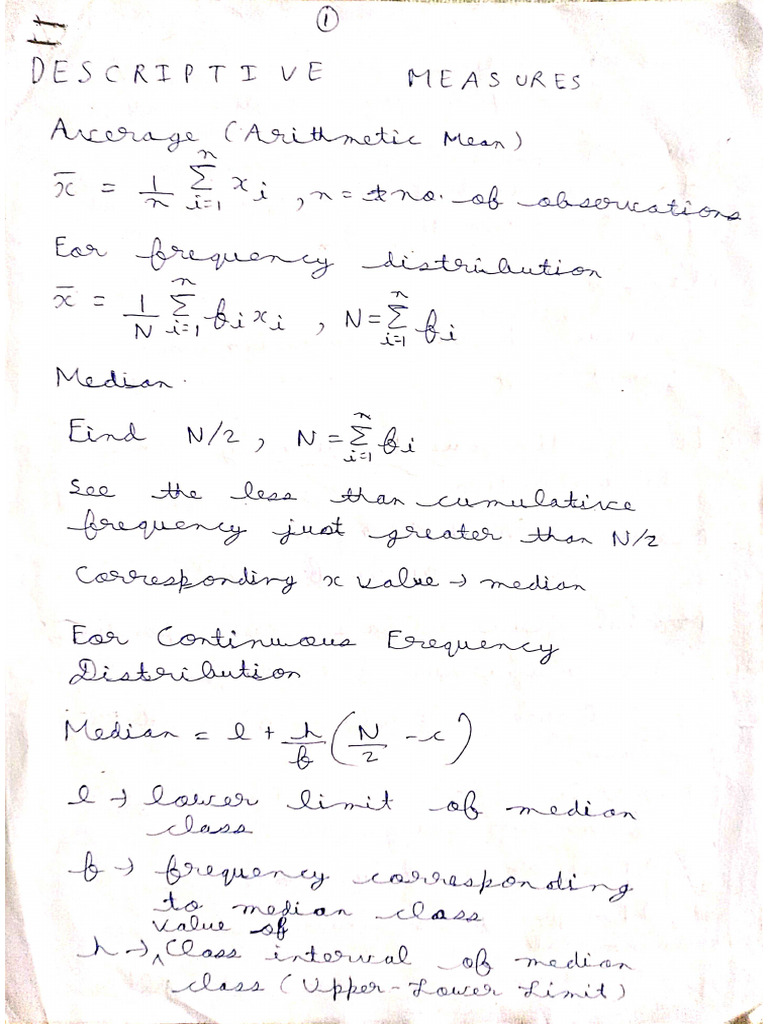 ①
DESCRIPTIVE MEASURES
Average (Arithmetic Mean)
x̄ = 1/n Σ_{i=1}^{n} x_i , n = no. of observations
For frequency distribution
x̄ = 1/N Σ_{i=1}^{n} f_i x_i , N = Σ_{i=1}^{n} f_i
Median.
Find N/2, N = Σ_{i=1}^{n} f_i
See the less than cumulative
frequency just greater than N/2
Corresponding x value → median
For Continuous Frequency
Distribution
Median = l + h/f (N/2 - c)
l → lower limit of median
class
f → frequency corresponding
to median class
h → value of Class interval of median
class (Upper-Lower Limit)